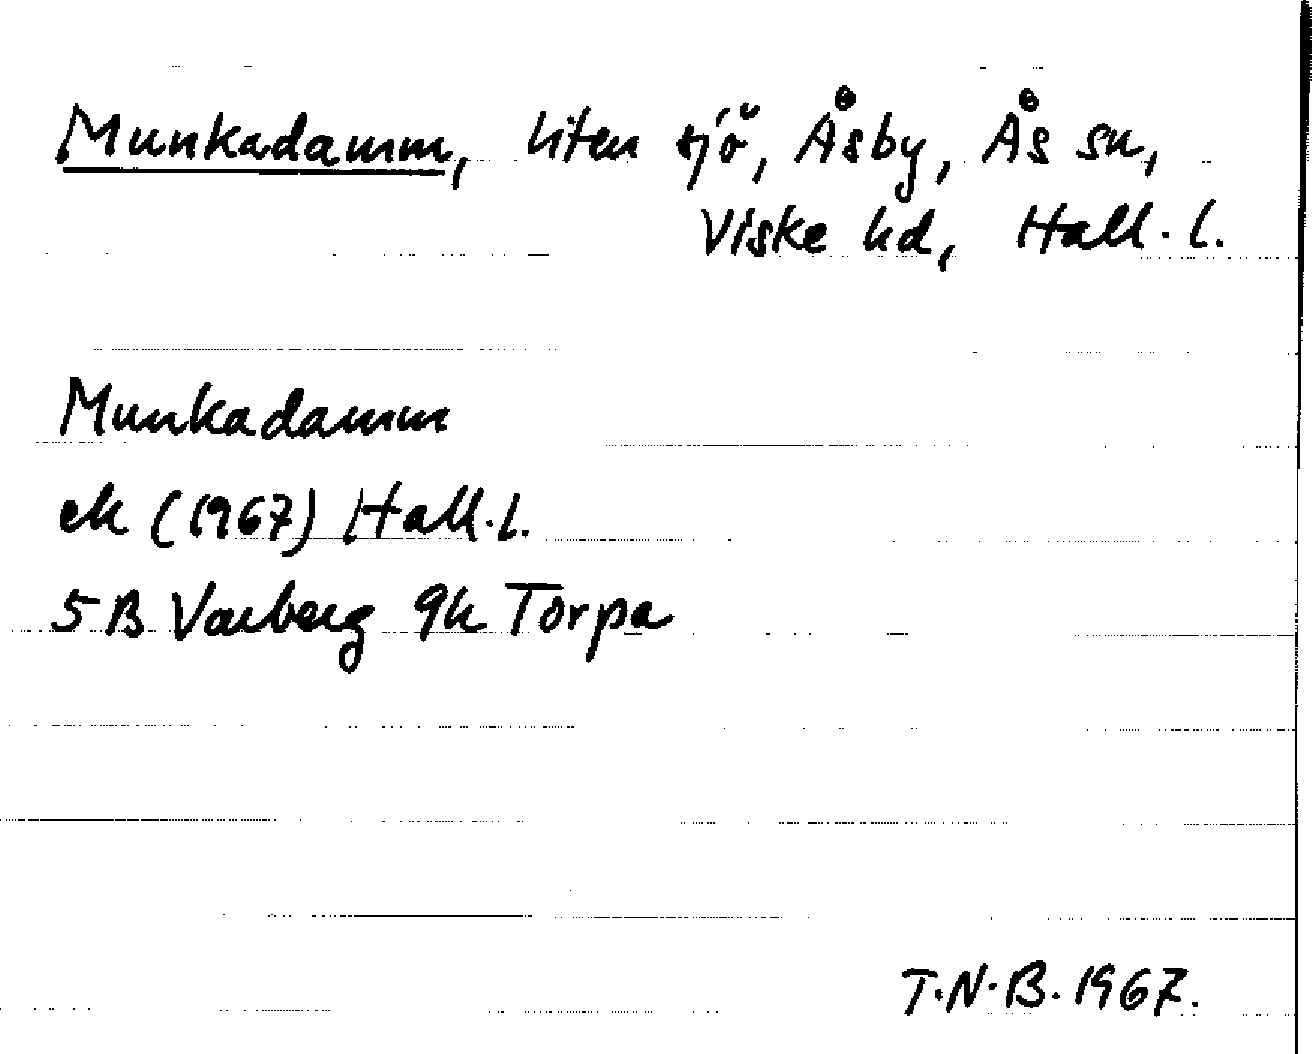 Munkadamm, liten sjö, Åsby, Ås sn,
Viske hd, Hall. l.
Munkadamm
ek (1967) Hall. l.
5B Varberg 9k Torpa
T.N.B. 1967.